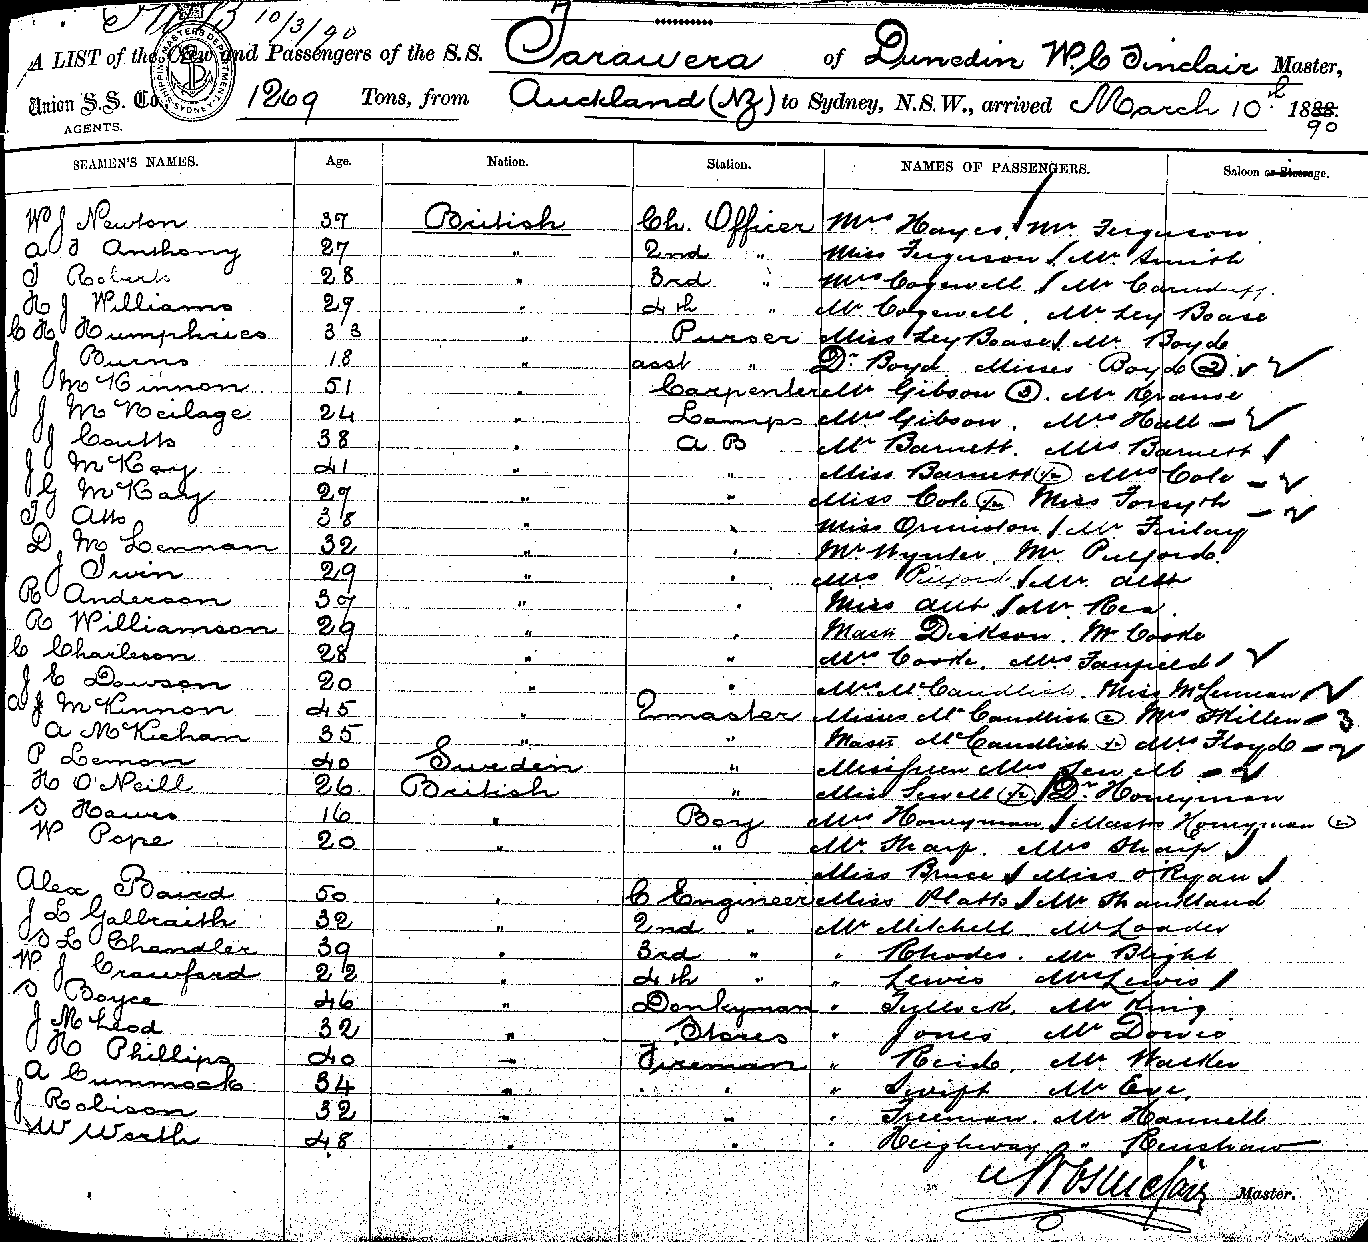 10/3/90
A LIST of the Crew and Passengers of the S.S. Tarawera of Dunedin W. C. Sinclair Master,
Union S.S. Co 1269 Tons, from Auckland (NZ) to Sydney, N.S.W., arrived March 10th 1888.
AGENTS. 90
SEAMEN'S NAMES. Age. Nation. Station. NAMES OF PASSENGERS. Saloon or Steerage.
W J Newton 37 British Ch. Officer Mrs Hayes / Mr Ferguson
A T Anthony 27 " 2nd " Miss Ferguson / Mr Smith
T Roberts 28 " 3rd " Mrs Cogewell / Mr
H J Williams 27 " 4th " Mr Cogewell. Mr Ley Boase
C H Humphries 33 " Purser Miss Ley Boase / Mr Boyd
J Burns 18 " asst " Dr Boyd Misses Boyd (2)
J McKinnon 51 " Carpenter Mr Gibson (3). Mr Krause
J McNeilage 24 " Lamps Mrs Gibson. Mrs Hall
J Coutts 38 " A B Mr Barnett. Mrs Barnett /
J McKay 41 " " Miss Barnett (1/2) Mrs Cole
J G McKay 29 " " Miss Cole (1/2) Miss Forsyth
T 38 " " Miss Ormiston / Mr Finlay
D McLennan 32 " " Mr Wynter. Mr Pulford.
J Irvin 29 " " Mrs Pulford / Mr Allt
R Anderson 39 " " Miss Allt / Mr Rea.
R Williamson 29 " " Mast Dickson. Mr Cooke
C Charleson 28 " " Mrs Cooke. Mrs Fanfield /
J C Dawson 20 " " Mrs McCandlish. Miss McLennan /
A J McKinnon 45 " Qmaster Misses McCandlish (2) Mrs Skillen - 3
A McKichan 35 " " Mastr McCandlish Mrs Floyd
P Lemon 40 Sweden " Miss Mrs Sewell
H O'Neill 26 British " Miss Sewell (1/2) / Dr Honeyman
S Hawes 16 " Boy Mrs Honeyman / Masters Honeyman
W Pope 20 " " Mr Sharp. Mrs Sharp /
Miss Bruce / Miss O'Ryan /
Alex Baird 50 " C Engineer Miss Platts / Mr Shandland
J L Galbraith 32 " 2nd " Mr Mitchell Mr Loader
S L Chandler 39 " 3rd " " Rhodes. Mr Blight
W J Crawford 22 " 4th " " Lewis Mrs Lewis /
S Boyce 46 " Donkyman " Tullock. Mr King
J McLeod 32 " Stores " Jones Mr Dowie
H Phillips 40 " Fireman " Reid. Mr Walker
A Cummock 34 " " " Swift Mr Eve.
J Robison 32 " " " Freeman. Mr Hannell
W Worth 48 " " " Heighway " Renshaw
W C Sinclair Master.